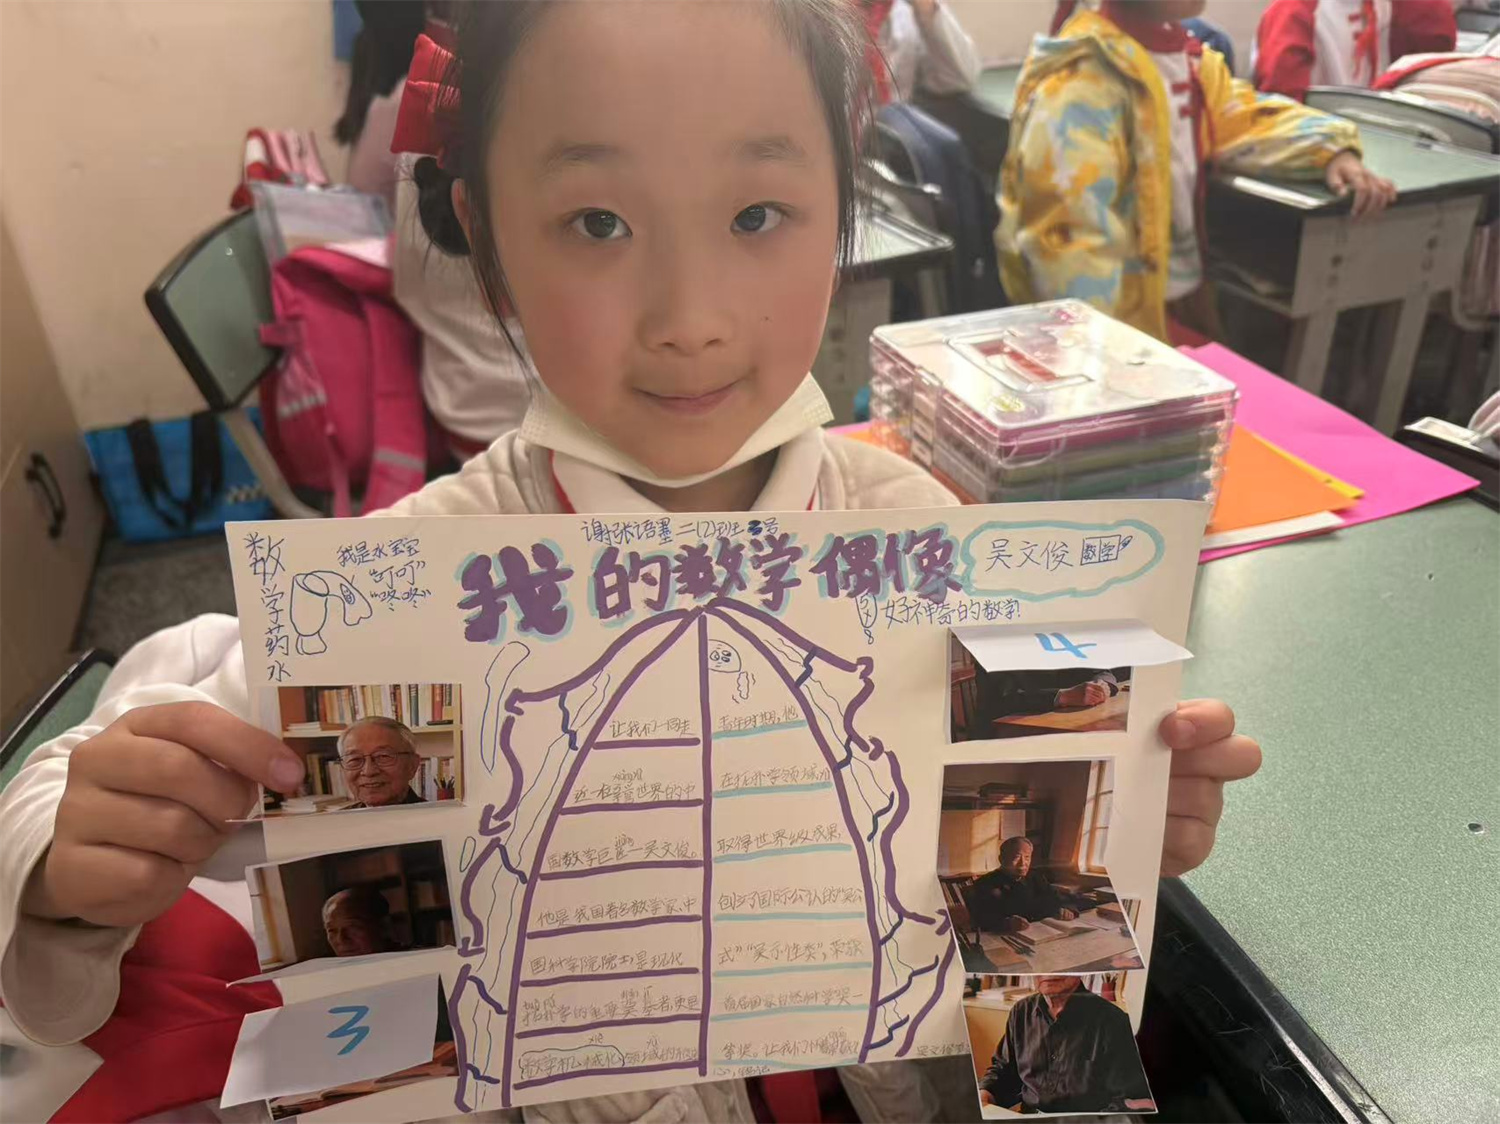 谢张语墨 二(2)班 号
我的数学偶像
吴文俊 数学
好神奇的数学!
数学药水
我是水宝宝
“叮叮”
“咚咚”
4
3
让我们一同走
近一位享誉世界的中
国数学巨匠—吴文俊。
他是我国著名数学家,中
国科学院院士,是现代
拓扑学的 奠基者,更是
数学机械化
青年时期,他
在拓扑学领域
取得世界级成果,
创立了国际公认的“吴公
式”“吴示性类”,荣获
首届国家自然科学奖一
等奖。让我们